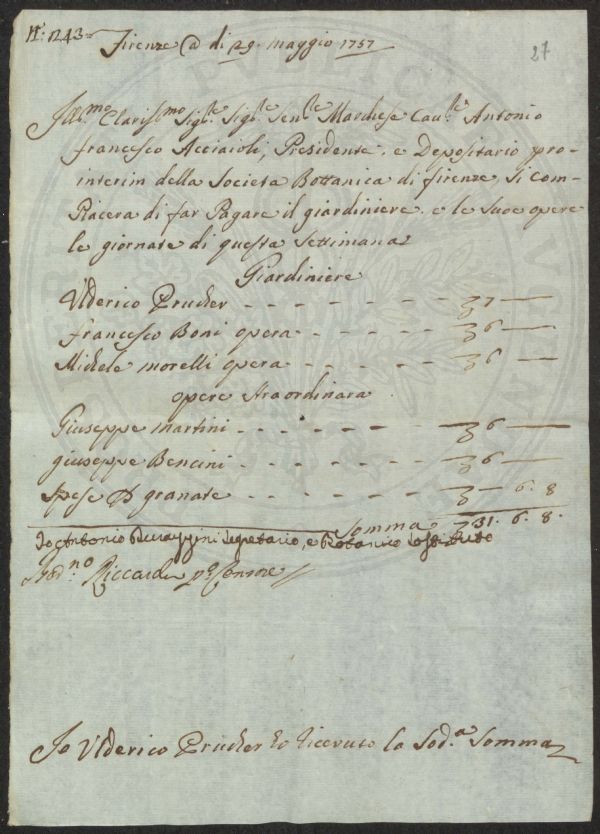 N.º 1243
27
Firenze @ di 29. maggio 1757
Ill.mo Clariss.mo Sig.re Sig.re Sen.re Marchese Cau.re Antonio
francesco Acciaioli, Presidente, e Depositario pro-
interim della Societa Bottanica di firenze, si com-
Piacera di far Pagare il giardiniere, e le Sue opere
le giornate di questa Settimana
Giardiniere
Ulderico Prucker - - - - - - 7 —
francesco Boni opera - - - - - 6 —
Michele morelli opera - - - - - 6 —
opere straordinara
Giuseppe martini - - - - - - 6 —
giuseppe Bencini - - - - - - 6 —
Spese granate - - - - - - — 6. 8
Somma 31. 6. 8.
Io Antonio Segretario, e Botanico Sostituto
Riccardi Censore
Io Ulderico Prucker ho riceuuto la Sod.a Somma